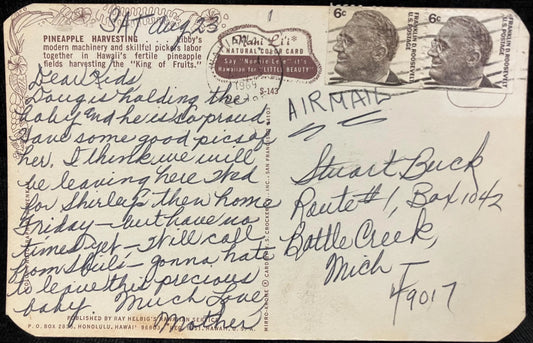 SAT Aug 23
PINEAPPLE HARVESTING Libby's
modern machinery and skillful pickers labor
together in Hawaii's fertile pineapple
fields harvesting the "King of Fruits."
Nani Li'i
NATURAL COLOR CARD
Say "Nonnie Lee" it's
Hawaiian for "LITTLE BEAUTY"
S-143
1969
Dear Kids
Doug is holding the
baby and he is so proud
Have some good pics of
her. I think we will
be leaving here Wed
for Shirley's then home
Friday - but have no
times yet - Will call
from Shirl's - gonna hate
to leave this precious
baby. Much Love
Mother
PUBLISHED BY RAY HELBIG'S HAWAIIAN SERVICE
P. O. BOX 2835, HONOLULU, HAWAII
6¢
FRANKLIN D. ROOSEVELT
U.S. POSTAGE
6¢
FRANKLIN D. ROOSEVELT
U.S. POSTAGE
AIRMAIL
Stuart Buck
Route #1, Box 1042
Battle Creek,
Mich
49017